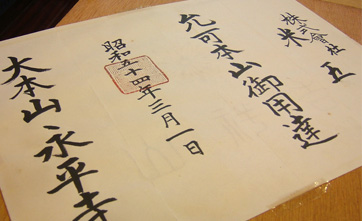 株式會社
米五
允可本山御用達
昭和五十四年三月一日
大本山永平寺